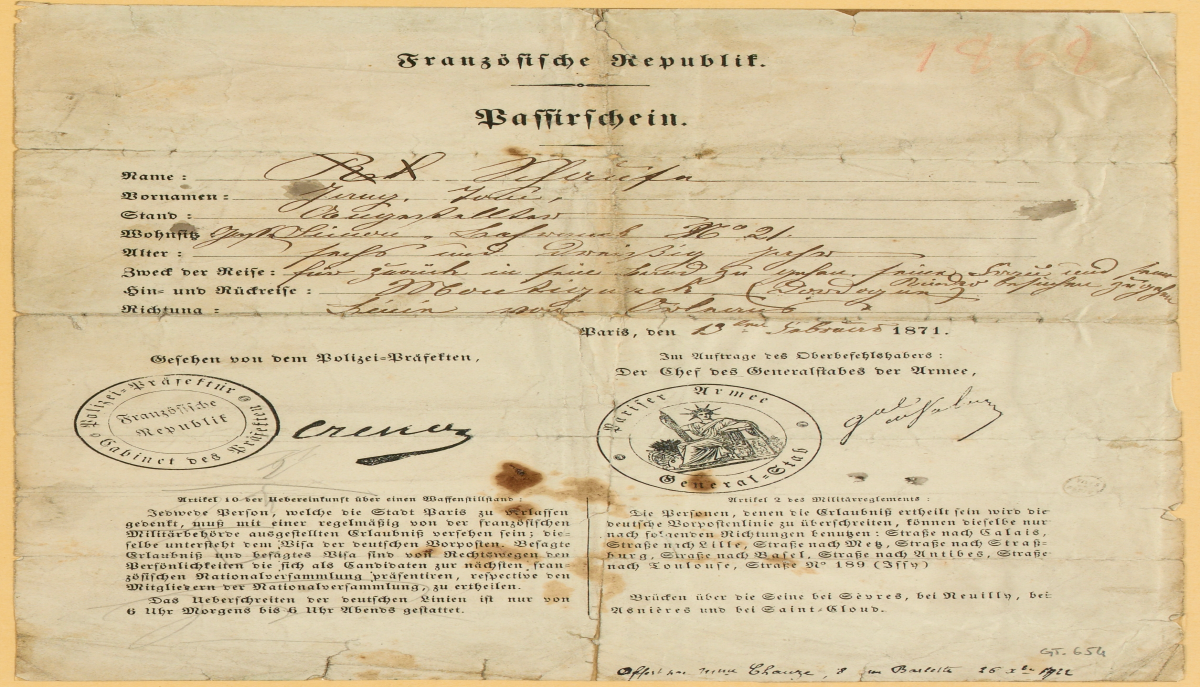 1868
Französische Republik.
Passirschein.
Name :
Vornamen :
Stand : Angestellter
Wohnsitz Lafromet No 21.
Alter : sechs und dreißig jahr
Zweck der Reise : für zurück in sein land zu gehen. seine Frau und seine
Kinder besuchen zu gehen
Hin- und Rückreise : (Dordogne)
Richtung :
Paris, den 13 Februar 1871.
Gesehen von dem Polizei=Präfekten,
Im Auftrage des Oberbefehlshabers :
Der Chef des Generalstabes der Armee,
Polizei=Präfektür
Französische
Republik
Cabinet des Präfekten
Pariser Armee
General=Stab
Artikel 10 der Uebereinkunft über einen Waffenstillstand :
Jedwede Person, welche die Stadt Paris zu verlassen
gedenkt, muß mit einer regelmäßig von der französischen
Militärbehörde ausgestellten Erlaubniß versehen sein; die=
selbe untersteht dem Visa der deutschen Vorposten. Besagte
Erlaubniß und besagtes Visa sind von Rechtswegen den
Persönlichkeiten die sich als Candidaten zur nächsten fran=
zösischen Nationalversammlung präsentiren, respective den
Mitgliedern der Nationalversammlung, zu ertheilen.
Das Ueberschreiten der deutschen Linien ist nur von
6 Uhr Morgens bis 6 Uhr Abends gestattet.
Artikel 2 des Militärreglements :
Die Personen, denen die Erlaubniß ertheilt sein wird die
deutsche Vorpostenlinie zu überschreiten, können dieselbe nur
nach folgenden Richtungen benutzen : Straße nach Calais,
Straße nach Lille, Straße nach Metz, Straße nach Straß=
burg, Straße nach Basel, Straße nach Antibes, Straße
nach Toulouse, Straße No 189 (Issy)
Brücken über die Seine bei Sèvres, bei Neuilly, bei
Asnières und bei Saint-Cloud.
GT. 654